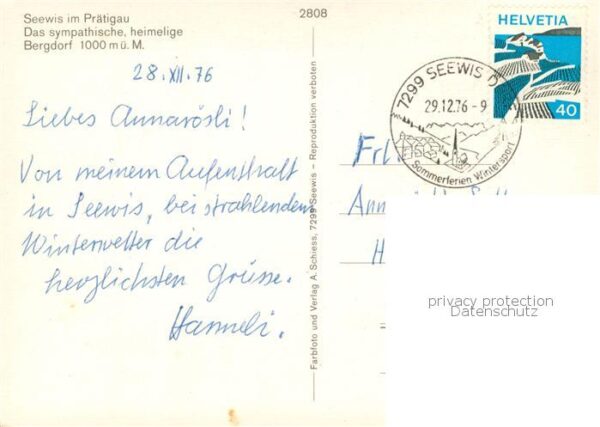 Seewis im Prätigau
Das sympathische, heimelige
Bergdorf 1000 m ü. M.
2808
28. XII. 76
Liebes Annarösli!
Von meinem Aufenthalt
in Seewis, bei strahlendem
Winterwetter die
herzlichsten Grüsse.
Hanneli.
Farbfoto und Verlag A. Schiess, 7299 Seewis – Reproduktion verboten
HELVETIA
40
7299 SEEWIS
29.12.76-9
Sommerferien Wintersport
privacy protection
Datenschutz